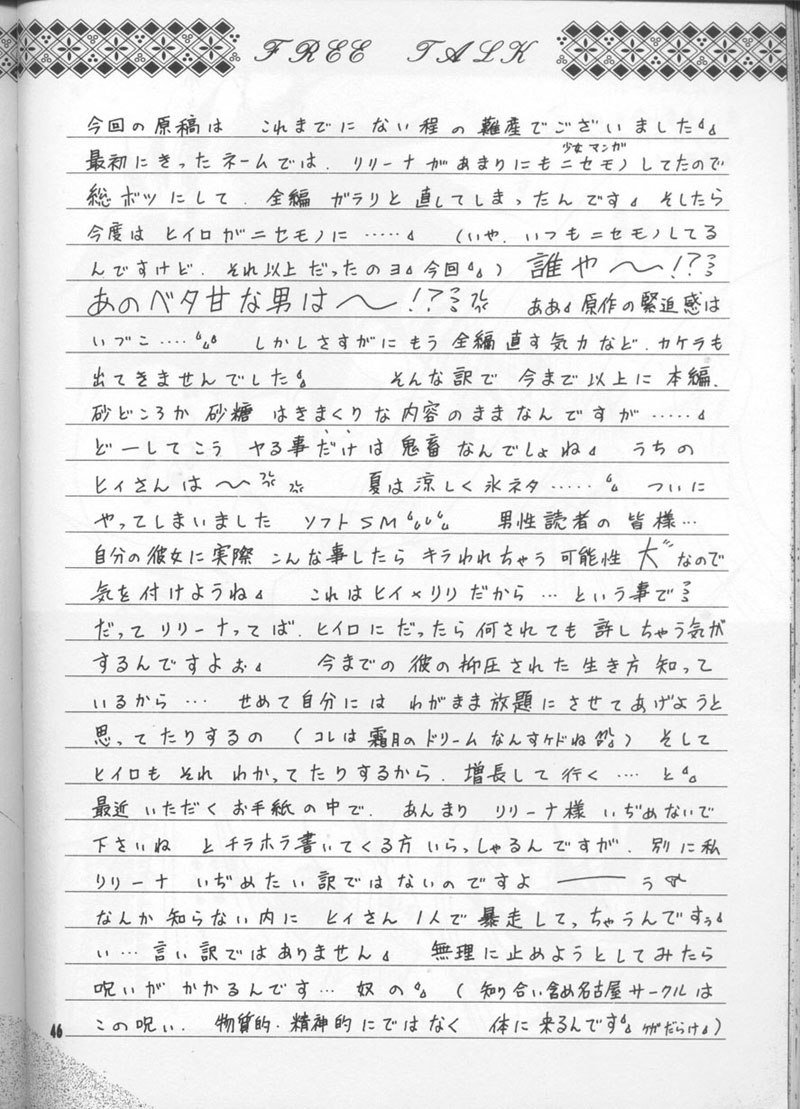 FREE TALK
今回の原稿は これまでに ない程の 難産でございました
少女マンガ
最初にきったネームでは、リリーナがあまりにもニセモノしてたので
総ボツにして、全編 ガラリと直してしまったんです そしたら
今度は ヒイロがニセモノに…… (いや、いつもニセモノしてる
んですけど、それ以上だったのヨ 今回) 誰や〜!?
あのベタ甘な男は〜!? ああ 原作の緊迫感は
いづこ…… しかしさすがにもう 全編直す気力など、カケラも
出てきませんでした そんな訳で 今まで以上に 本編、
砂どころか 砂糖 はきまくりな内容のままなんですが……
どーしてこう ヤる事だけは 鬼畜 なんでしょね うちの
ヒイさんは〜 夏は涼しく氷ネタ…… ついに
やってしまいました ソフトSM 男性読者の 皆様…
自分の彼女に実際 こんな事したら キラわれちゃう 可能性 大 なので
気を付けようね これはヒイ×リリだから… という事で
だって リリーナってば、ヒイロにだったら何されても 許しちゃう気が
するんですよぉ 今までの 彼の抑圧された 生き方 知って
いるから… せめて自分には わがまま放題に させてあげようと
思ってたりするの (コレは 霜月のドリームなんすケドね) そして
ヒイロも それ わかってたりするから、増長して 行く…… と
最近 いただく お手紙の中で、 あんまり リリーナ様 いぢめないで
下さいね とチラホラ書いてくる方 いらっしゃるんですが、別に私
リリーナ いぢめたい 訳ではないのですよ ── う
なんか 知らない内に ヒイさん 1人で 暴走してっちゃうんですぅ
い… 言い訳ではありません 無理に止めようとしてみたら
呪いが かかるんです… 奴の (知り合い含め名古屋サークルは
この呪い、物質的・精神的にではなく 体に来るんです ケガだらけ)
46